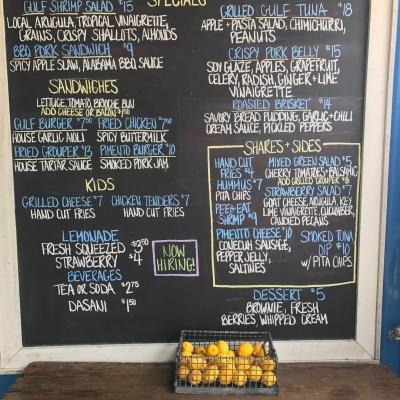 SPECIALS
GULF SHRIMP SALAD $15
LOCAL ARUGULA, TROPICAL VINAIGRETTE,
GRAINS, CRISPY SHALLOTS, ALMONDS
BBQ PORK SANDWICH $9
SPICY APPLE SLAW, ALABAMA BBQ SAUCE
SANDWICHES
LETTUCE, TOMATO, BRIOCHE BUN
ADD CHEESE OR BACON
GULF BURGER $7.50 FRIED CHICKEN $7.50
HOUSE GARLIC AIOLI SPICY BUTTERMILK
FRIED GROUPER $13 PIMENTO BURGER $10
HOUSE TARTAR SAUCE SMOKED PORK JAM
KIDS
GRILLED CHEESE $7 CHICKEN TENDERS $7
HAND CUT FRIES HAND CUT FRIES
LEMONADE
FRESH SQUEEZED $3.50
STRAWBERRY $4
BEVERAGES
TEA OR SODA $2.75
DASANI $1.50
NOW
HIRING!
GRILLED GULF TUNA $18
APPLE + PASTA SALAD, CHIMICHURRI,
PEANUTS
CRISPY PORK BELLY $15
SOY GLAZE, APPLES, GRAPEFRUIT,
CELERY, RADISH, GINGER + LIME
VINAIGRETTE
ROASTED BRISKET $14
SAVORY BREAD PUDDING, GARLIC + CHILI
CREAM SAUCE, PICKLED PEPPERS
SHARES + SIDES
HAND CUT
FRIES $4
HUMMUS $7
PITA CHIPS
PEEL & EAT
SHRIMP $9
PIMENTO CHEESE $10
CONECUH SAUSAGE,
PEPPER JELLY,
SALTINES
MIXED GREEN SALAD $5
CHERRY TOMATOES + BALSAMIC
ADD GRILLED GROUPER $8
STRAWBERRY SALAD $7
GOAT CHEESE, ARUGULA, KEY
LIME VINAIGRETTE, CUCUMBER,
CANDIED PECANS
SMOKED TUNA
DIP $10
W/ PITA CHIPS
DESSERT $5
BROWNIE, FRESH
BERRIES, WHIPPED CREAM